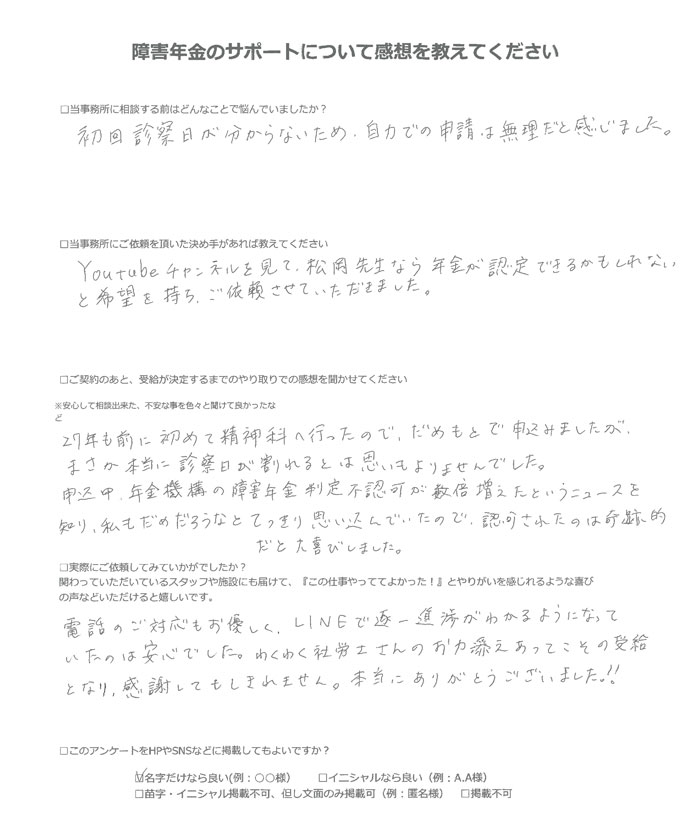 障害年金のサポートについて感想を教えてください
□当事務所に相談する前はどんなことで悩んでいましたか？
初回診察日が分からないため、自力での申請は無理だと感じました。
□当事務所にご依頼を頂いた決め手があれば教えてください
Youtubeチャンネルを見て、松岡先生なら年金が認定できるかもしれない
と希望を持ち、ご依頼させていただきました。
□ご契約のあと、受給が決定するまでのやり取りでの感想を聞かせてください
※安心して相談出来た、不安な事を色々と聞けて良かったな
ど
27年も前に初めて精神科へ行ったので、だめもとで申込みましたが、
まさか本当に診察日が割れるとは思いもよりませんでした。
申込中、年金機構の障害年金判定不認可が数倍増えたというニュースを
知り、私もだめだろうなとてっきり思い込んでいたので、認可されたのは奇跡的
だと大喜びしました。
□実際にご依頼してみていかがでしたか？
関わっていただいているスタッフや施設にも届けて、『この仕事やっててよかった！』とやりがいを感じれるような喜び
の声などいただけると嬉しいです。
電話のご対応もお優しく、LINEで逐一進捗がわかるようになって
いたのは安心でした。わくわく社労士さんのお力添えあってこその受給
となり、感謝してもしきれません。本当にありがとうございました!!
□このアンケートをHPやSNSなどに掲載してもよいですか？
☑名字だけなら良い(例：○○様)　□イニシャルなら良い（例：A.A様）
□苗字・イニシャル掲載不可、但し文面のみ掲載可（例：匿名様）　□掲載不可